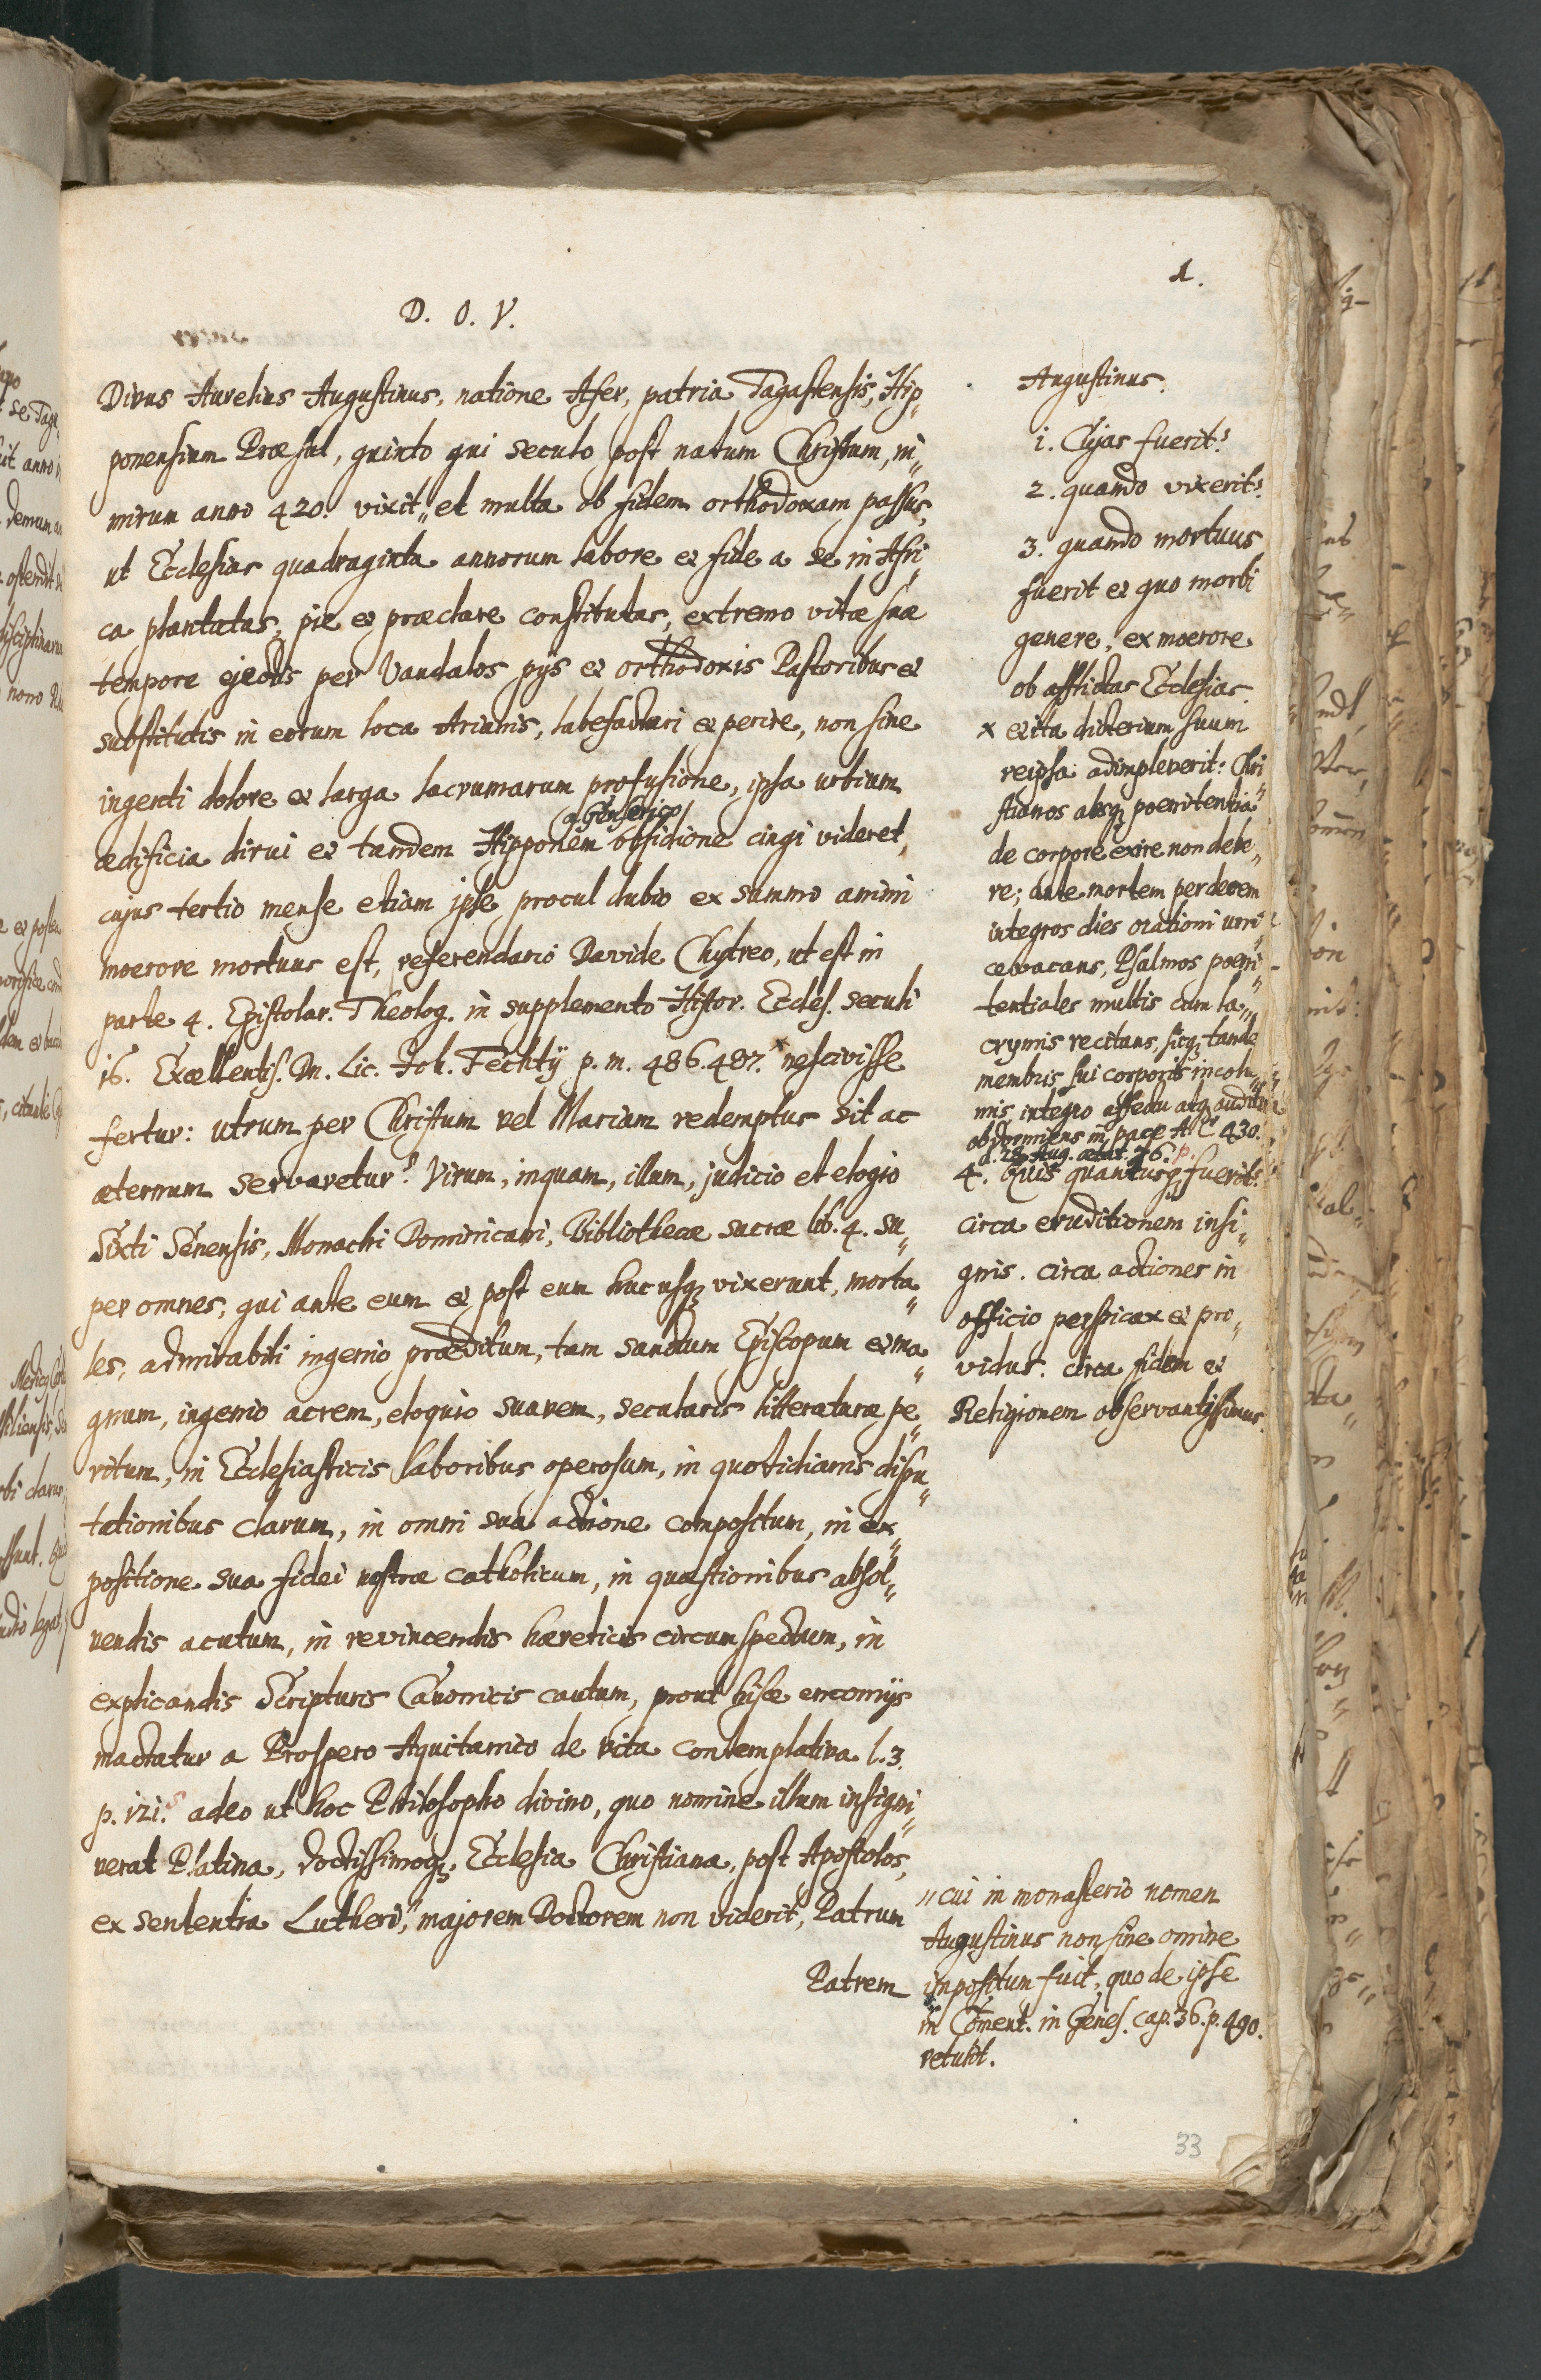 1.
D. O. V.
Divus Aurelius Augustinus, natione Afer, patria Tagastensis, Hip„
ponensium Præsul, quinto qui seculo post natum Christum, ni„
mirum anno 420. vixit„ et multa ob fidem orthodoxam passus,
ut Ecclesias quadraginta annorum labore et fide a se in Afri„
ca plantatas, pie et præclare constitutas, extremo vitæ suæ
tempore ejectis per Vandalos pijs et orthodoxis Pastoribus et
substitutis in eorum loca Arianis, labefactari et perire, non sine
ingenti dolore et larga lacrumarum profusione, ipsa urbium
a Genserico
ædificia dirui et tandem Hipponem obsidione cingi videret,
cujus tertio mense etiam ipse procul dubio ex summo animi
moerore mortuus est, referendario Davide Chytreo, ut est in
parte 4. Epistolar. Theolog. in supplemento Histor. Eccles. seculi
16. Excellentiss. Dn. Lic. Joh. Fechtij p. m. 486. 487. x nescivisse
fertur: utrum per Christum vel Mariam redemptus sit ac
æternum servaretur? Virum, inquam, illum, judicio et elogio
Sixti Senensis, Monachi Dominicani, Bibliothecæ sacræ lib. 4. su„
per omnes, qui ante eum et post eum hucusq; vixerunt, morta„
les, admirabili ingenio præditum, tam sanctum Episcopum et ma„
gnum, ingenio acrem, eloquio suavem, secularis litteraturæ pe„
ritum, in Ecclesiasticis laboribus operosum, in quotidianis dispu„
tationibus clarum, in omni sua actione compositum, in ex„
positione sua fidei nostræ catholicum, in quæstionibus absol„
vendis acutum, in revincendis hæreticis circumspectum, in
explicandis Scripturis Canonicis cautum, prout hisce encomijs
mactatur a Prospero Aquitanico de vita contemplativa l. 3.
p. 121. adeo ut hoc Philosopho divino, quo nomine illum insigni„
verat Platina, doctissimoq; Ecclesia Christiana, post Apostolos,
ex sententia Lutheri,„ majorem Doctorem non viderit, Patrum
Patrem
Augustinus.
1. Cujas fuerit?
2. quando vixerit?
3. quando mortuus
fuerit et quo morbi
genere, ex moerore
ob afflictas Ecclesias
x et ita dicterium suum
reipsa adimpleverit: Chri„
stianos absq; poenitentia
de corpore exire non debe„
re; ante mortem per decem
integros dies orationi uni„
ce vacans, Psalmos poeni„
tentiales multis cum la„
crymis recitans, sicq; tande
membris sui corporis incolu„
mis, integro affectu atq; auditu
obdormiens in pace A. C. 430.
d. 28. Aug. ætat. 76.
4. Quis quantusq; fuerit?
circa eruditionem insi„
gnis. circa actiones in
officio perspicax et pro„
vidus. circa fidem et
Religionem observantissimus.
„ cui in monasterio nomen
Augustinus non sine omine
impositum fuit, quo de ipse
in Coment. in Genes. cap. 36. p. 490.
retulit.
33